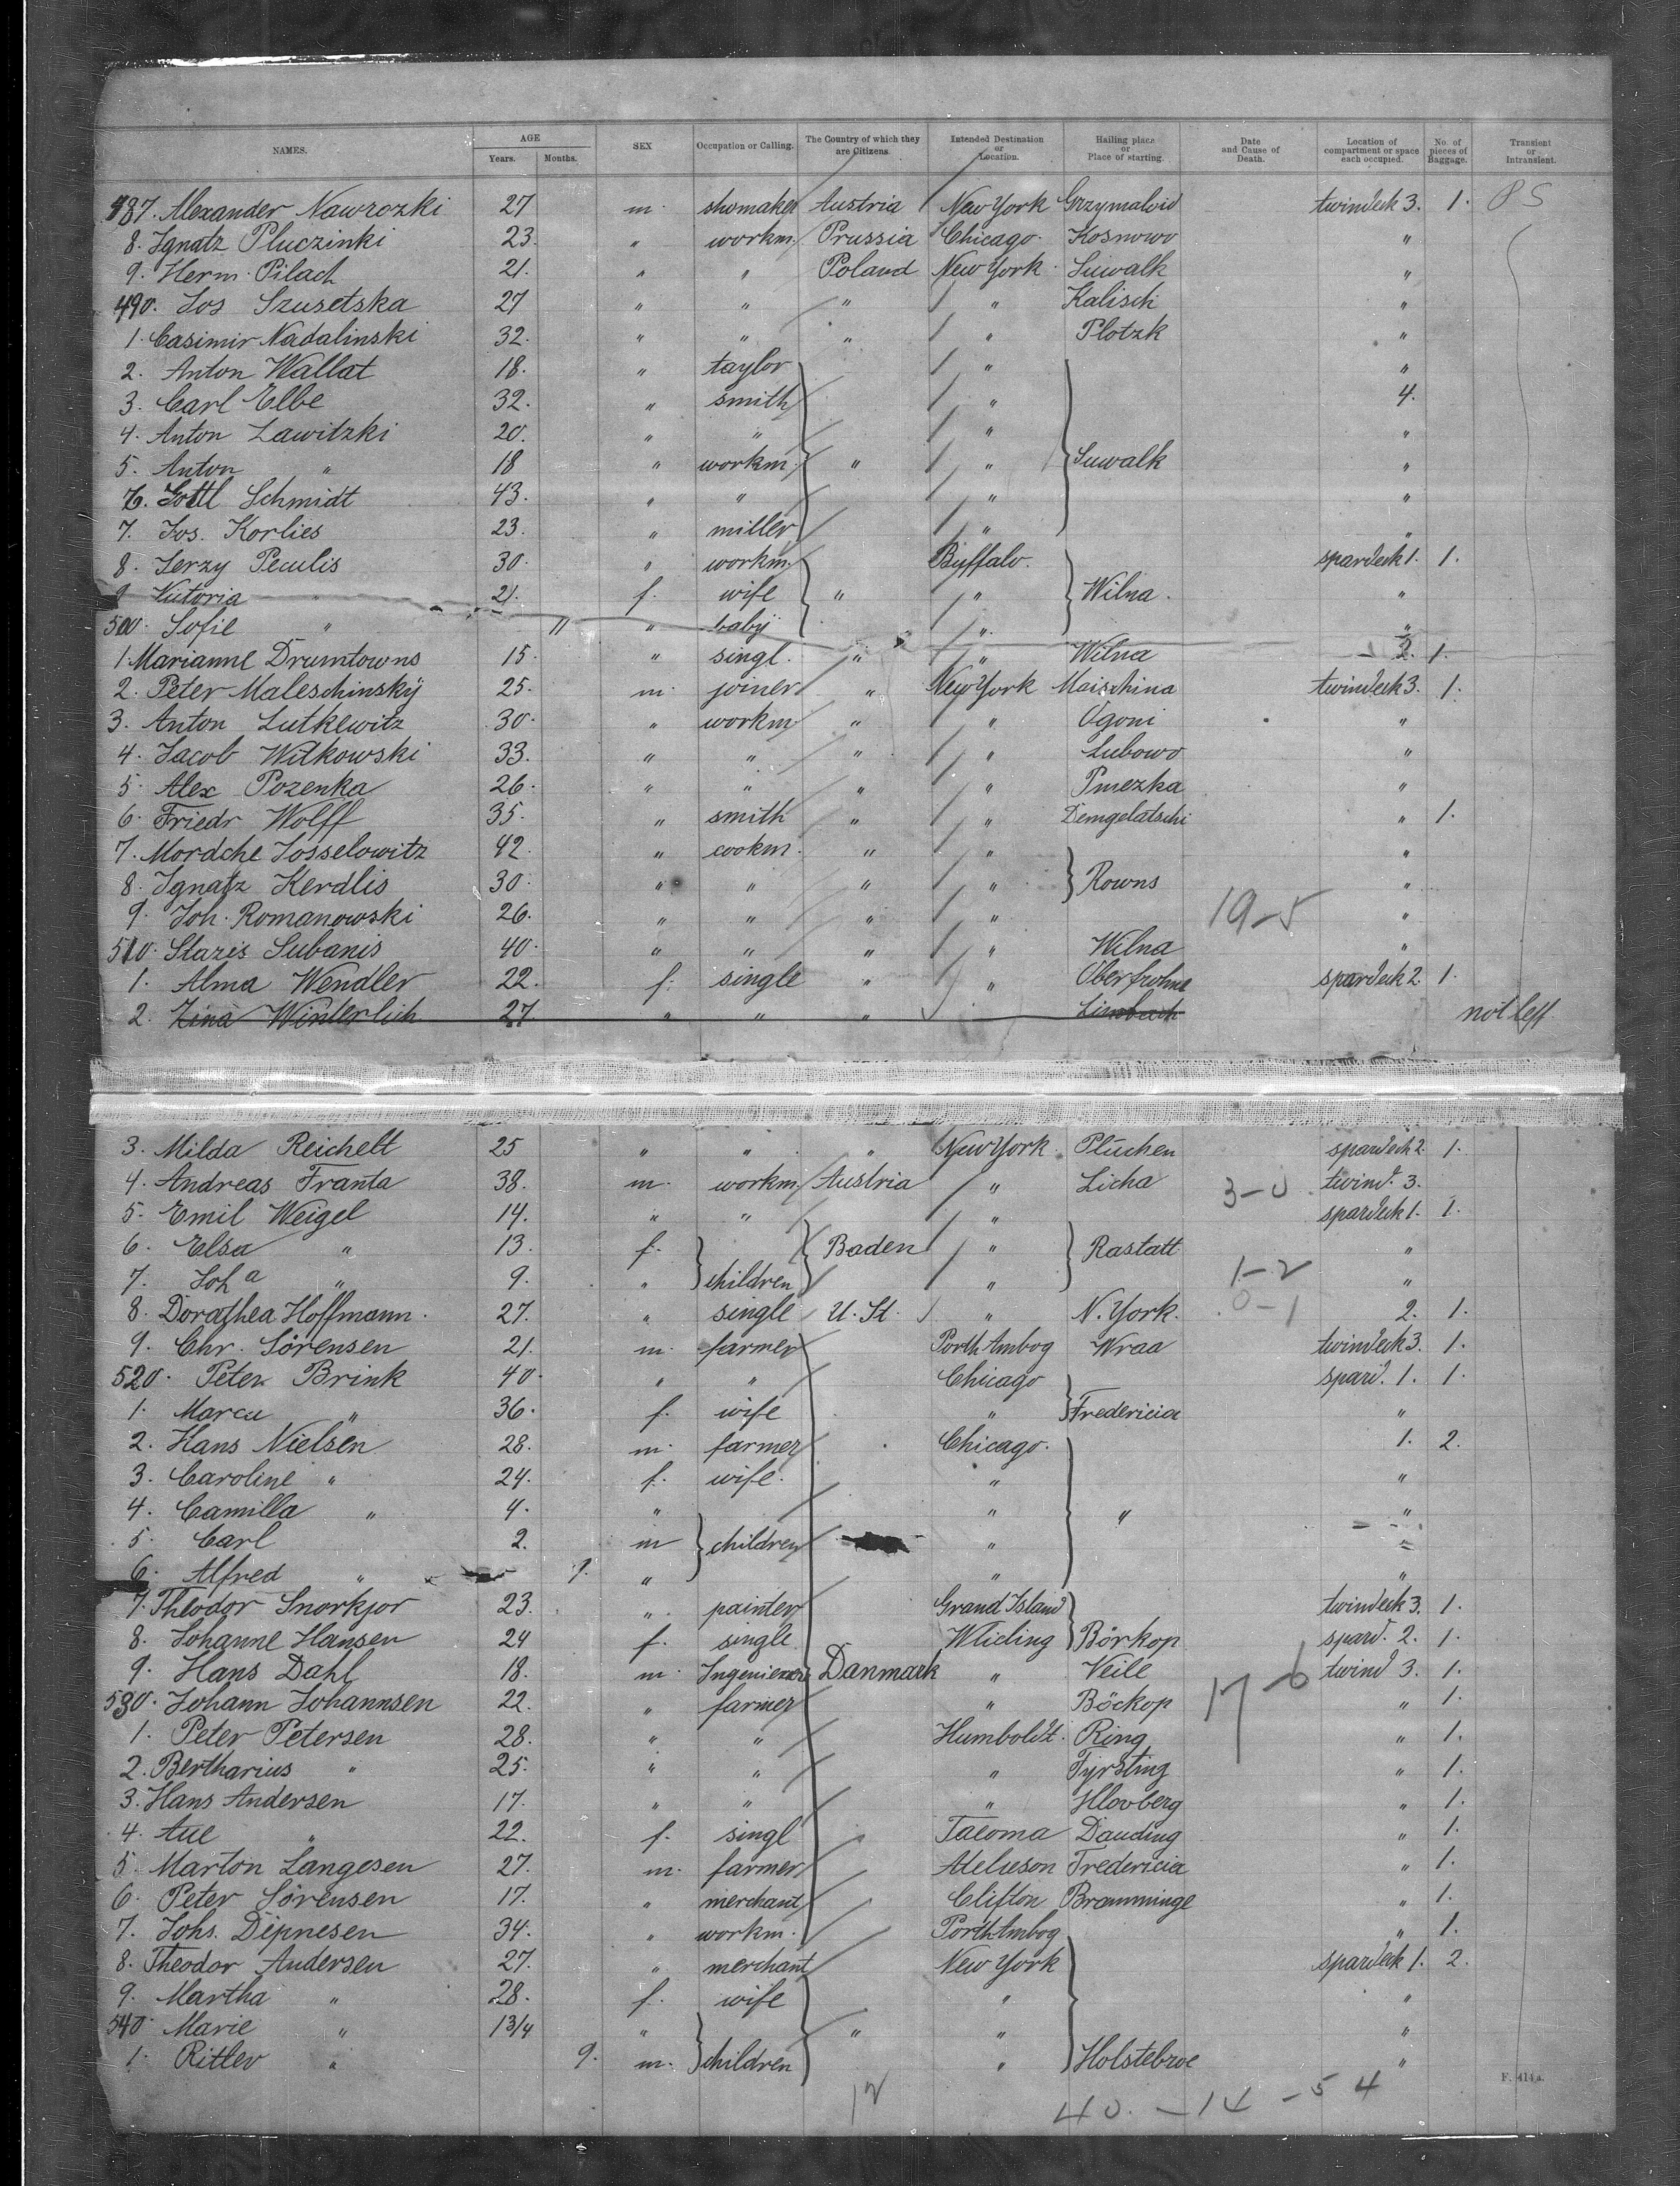 NAMES. AGE Years. Months. SEX Occupation or Calling. The Country of which they are Citizens. Intended Destination or Location. Hailing place or Place of starting. Date and Cause of Death. Location of compartment or space each occupied. No. of pieces of Baggage. Transient or Intransient.
487. Alexander Nawrozki 27 m. shomaker Austria New York Grzymalvid twindeck 3. 1.
8. Ignatz Pluczinki 23. " workm. Prussia Chicago. Kosnowo "
9. Herm. Pilach 21. " " Poland New York. Suwalk "
490. Jos Szusetska 27 " " " " Kalisch "
1. Casimir Nadalinski 32. " " " " Plotzk "
2. Anton Wallat 18. " taylor " "
3. Carl Elbe 32. " smith " 4.
4. Anton Lawitzki 20. " " " "
5. Anton " 18 " workm. " " Suwalk "
6. Gottl Schmidt 43. " " " "
7. Jos. Korlies 23. " miller " "
8. Jerzy Peculis 30. " workm. Buffalo. spardeck 1. 1.
9 Victoria " 21. f. wife " " Wilna. "
500. Sofie " 11 " baby " "
1. Marianne Drumtowns 15. " singl. " " Wilna 2. 1.
2. Peter Maleschinskÿ 25. m. joiner " New York Maischina twindeck 3. 1.
3. Anton Lutkewitz 30. " workm " " Ogoni "
4. Jacob Witkowski 33. " " " " Lubowo "
5. Alex Pozenka 26. " " " " Pmezka "
6. Friedr Wolff 35. " smith " " Demgelatschi " 1.
7. Mordche Josselowitz 42. " cookm. " " "
8. Ignatz Kerdlis 30. " " " " Rowns "
9. Joh. Romanowski 26. " " " " 19-5 "
510. Stazis Subanis 40. " " " " Wilna "
1. Alma Wendler 22. f. single " " Oberfrohna spardeck 2 1.
2. Lina Winterlich 27. " " " Limbach not left
3. Milda Reichelt 25 " " " New York Pluchen spardeck 2. 1.
4. Andreas Franta 38. m. workm. Austria " Licha 3-0 twind. 3.
5. Emil Weigel 14. " " " spardeck 1. 1.
6. Elsa " 13. f. Baden " Rastatt "
7. Joha " 9. " children " 1-2 "
8. Dorothea Hoffmann. 27. " single U. St. " N. York. 0-1 2. 1.
9. Chr. Sörensen 21. m. farmer Porth Ambog Wraa twindeck 3. 1.
520. Peter Brink 40. " " Chicago spard. 1. 1.
1. Marca " 36. f. wife " Fredericia "
2. Hans Nielsen 28. m. farmer Chicago. 1. 2.
3. Caroline " 24. f. wife. " "
4. Camilla " 4. " " " "
5. Carl 2. m children " "
6. Alfred " 9. " " "
7. Theodor Snorkjor 23. " painter Grand Island twindeck 3. 1.
8. Johanne Hansen 24 f. single Börkop spard. 2. 1.
9. Hans Dahl 18. m. Ingenieur Danmark " Veile twind 3. 1.
530. Johann Johannsen 22. " farmer " Böckop 17-6 " 1.
1. Peter Petersen 28. " " Humboldt. Ring " 1.
2. Bertharius " 25. " " " Fyrsting " 1.
3. Hans Andersen 17. " " " Hlovberg " 1.
4. Aue " 22. f. singl Tacoma Dauding " 1.
5. Marton Langesen 27. m. farmer Atcheson Fredericia " 1.
6. Peter Sörensen 17. " merchant Clifton Bramminge " 1.
7. Johs. Depnesen 34. " workm. Porth Ambog " 1.
8. Theodor Andersen 27. " merchant New York spardeck 1. 2.
9. Martha " 28. f. wife " "
540. Marie " 1 3/4 " " " "
1. Ritler " 9. m. children " Holstebroe "
12 40. - 14 - 54
F. 414a.